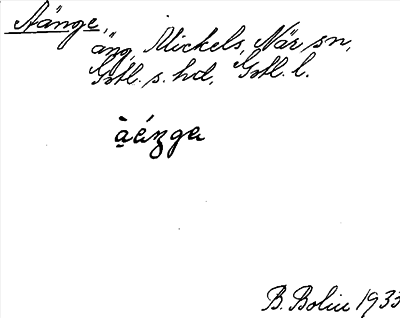 Äänge,
äng, Mickels, När sn,
Gotl. s. hd, Gotl. l.
B. Bolin 1933